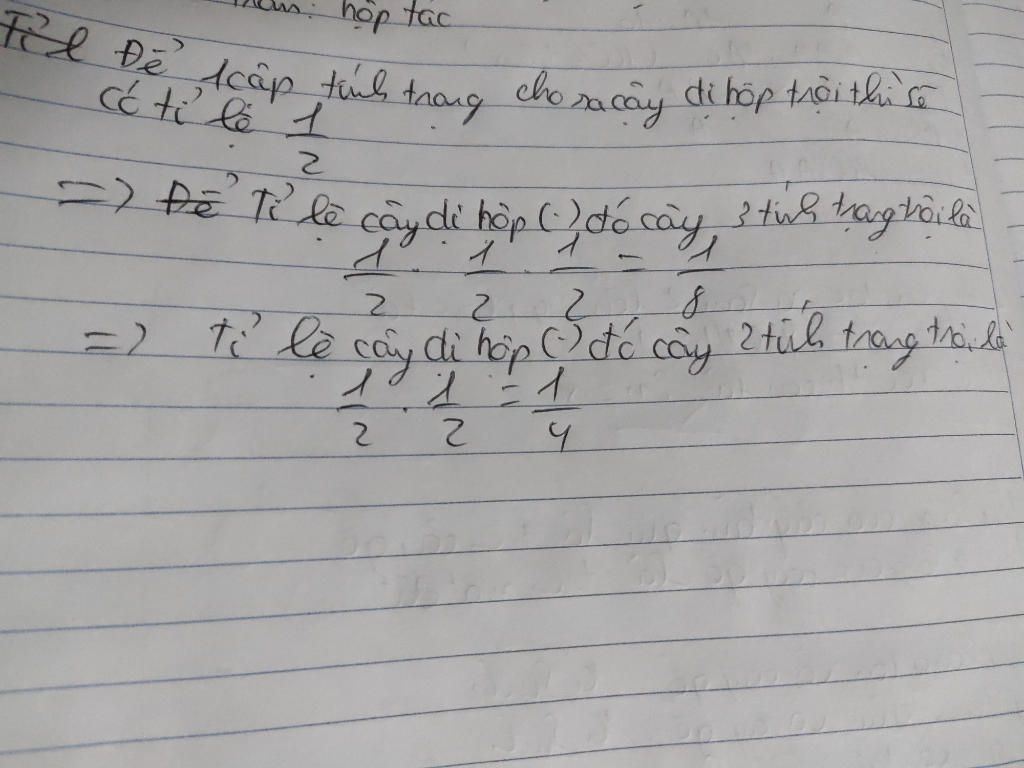 hợp tác
Tỉ l Để 1 cặp tính trạng cho ra cây dị hợp trội thì sẽ
có tỉ lệ 1/2
=> Để Tỉ lệ cây dị hợp (.) đó cây 3 tính trạng trội là
1/2 . 1/2 . 1/2 = 1/8
=> Tỉ lệ cây dị hợp (.) đó cây 2 tính trạng trội là
1/2 . 1/2 = 1/4